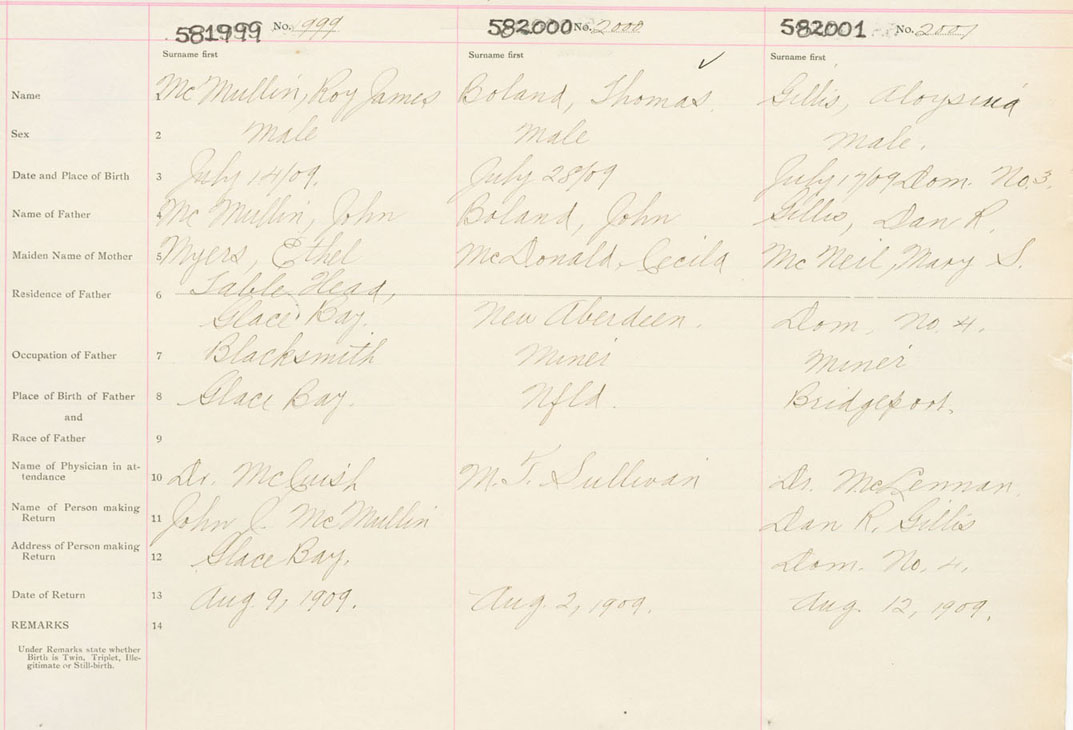 581999 No. 999 582000 No. 2000 582001 No. 2001
Surname first Surname first Surname first
Name 1 McMullin, Roy James Boland, Thomas. Gillis, Aloysius
Sex 2 Male Male Male.
Date and Place of Birth 3 July 14/09. July 28/09 July 17/09 Dom. No. 3.
Name of Father 4 McMullin, John Boland, John Gillis, Dan R.
Maiden Name of Mother 5 Myers, Ethel McDonald, Cecila McNeil, Mary S.
Residence of Father 6 Table Head,
Glace Bay. New Aberdeen. Dom. No. 4.
Occupation of Father 7 Blacksmith Miner Miner
Place of Birth of Father 8 Glace Bay. Nfld. Bridgeport.
and
Race of Father 9
Name of Physician in at-
tendance 10 Dr. McCuish M. T. Sullivan Dr. McLennan.
Name of Person making
Return 11 John C. McMullin Dan R. Gillis
Address of Person making
Return 12 Glace Bay. Dom. No. 4.
Date of Return 13 Aug. 9, 1909. Aug. 2, 1909. Aug. 12, 1909.
REMARKS 14
Under Remarks state whether
Birth is Twin, Triplet, Ille-
gitimate or Still-birth.